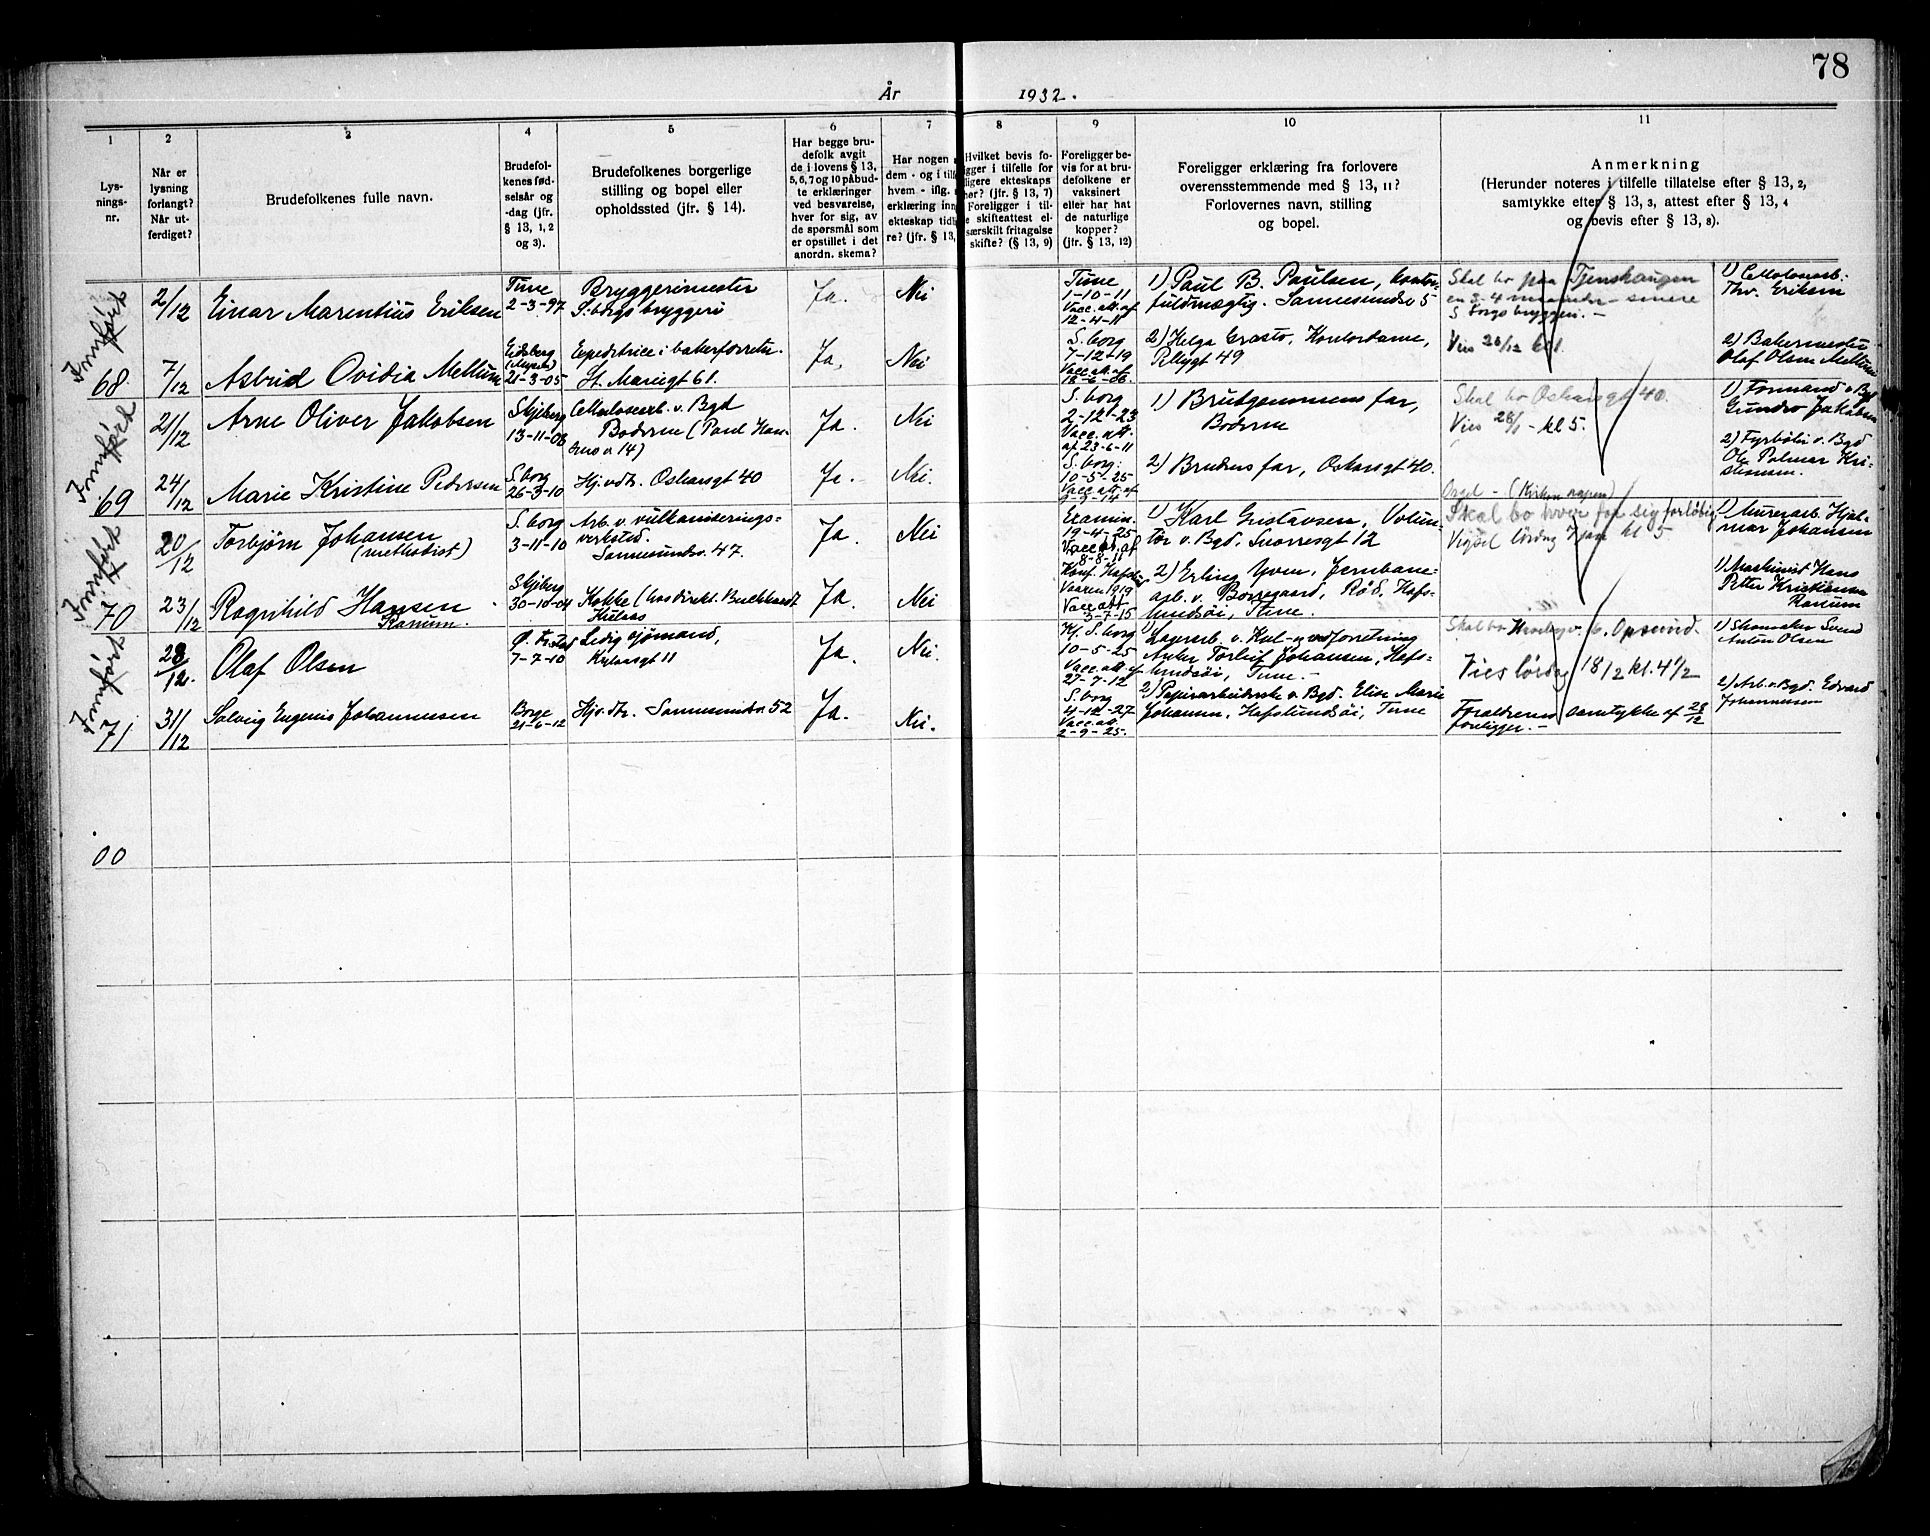 78
År 1932.
1 2 3 4 5 6 7 8 9 10 11
Lys-
nings-
nr.
Når er
lysning
forlangt?
Når ut-
ferdiget?
Brudefolkenes fulle navn.
Brudefol-
kenes fød-
selsår og
-dag (jfr.
§ 13, 1, 2
og 3).
Brudefolkenes borgerlige
stilling og bopel eller
opholdssted (jfr. § 14).
Har begge bru-
defolk avgit
de i lovens § 13,
5, 6, 7 og 10 påbud-
te erklæringer
ved besvarelse,
hver for sig, av
de spørsmål som
er opstillet i det
anordn. skema?
Har nogen
dem - og i tilf
hvem - iflg.
erklæring inn
ekteskap tidli
re? (jfr. § 13,
Hvilket bevis fo-
gger i tilfelle for
ligere ekteskaps
her? (jfr. § 13, 7)
Foreligger i til-
e skifteattest el-
særskilt fritagelse
skifte? (§ 13, 9)
Foreligger be-
vis for at bru-
defolkene er
vaksinert
eller har hat
de naturlige
kopper?
(jfr. § 13, 12)
Foreligger erklæring fra forlovere
overensstemmende med § 13, 11?
Forlovernes navn, stilling
og bopel.
Anmerkning
(Herunder noteres i tilfelle tillatelse efter § 13, 2,
samtykke efter § 13, 3, attest efter § 13, 4
og bevis efter § 13, 8).
Innført
68
2/12
Einar Marentius Eriksen
Tune
2-3-97
Bryggerimester
S.borgs bryggeri
Ja.
Nei
Tune
1-10-11
Vacc. att. af
12-4-11
1) Paul B. Paulsen, kontor-
fuldmægtig. Sannesundsv 5
Skal bo paa Tjenshaugen
en 3-4 maaneder - senere
S borgs bryggeri. -
1) Cellulosearb.
Thv. Eriksen
7/12
Astrid Ovidia Mellum
Eidsberg
(Mysen)
21-3-05
Expeditrice i bakerforretn.
St. Mariegt 61.
Ja,
Nei
S. borg
7-12-19
Vacc. att. af
18-6-06
2) Helga Grasto, Kontordame,
Pellygt 49
Vies 26/12 kl 1.
2) Bakermester
Olaf Olsen Mellum
Innført
69
21/12
Arne Oliver Jakobsen
Skjeberg
13-11-08
Cellulosearb. v. Bgd
Boderne (Paul Han-
sens v 14)
Ja.
Nei
S. borg
2-12-23
Vacc. att.
af 23-6-11
1) Brudgommens far,
Boderne
Skal bo Oskarsgt 40.
Vies 28/1 - kl 5.
1) Formand v Bgd
Gundro Jakobsen
24/12
Marie Kristine Pedersen
S. borg
26-3-10
Hj.vdtr. Oskarsgt 40
Ja.
Nei.
S. borg:
10-5-25
Vacc att. af
9-9-14
2) Brudens far, Oskarsgt 40.
2) Fyrbøter v. Bgd
Ole Palmar Kri-
stiansen.
Innført
70
20/12
Torbjørn Johansen
(methodist)
S. borg
3-11-10
Arb. v. vulkaniserings-
verksted.
Sannesundsv. 47.
Ja.
Nei
Examin.
19-4-25
Vacc att. af
8-8-11
1) Karl Gustavsen, Volun-
tør v. Bgd. Snorresgt 12
Orgel - (Kirken aapen)
Skal bo hver for sig forløbig
Vigsel lørdag 7 jan kl 5
1) Murerarb. Hjal-
mar Johansen
23/12
Ragnhild Hansen
Ranum.
Skjeberg
30-10-04
Kokke (hos direkt. Buchhardt
Kulaas
Ja.
Nei
Konf. Hafslund
Vaaren 1919
Vacc att
3-7-15
2) Erling Yven, Jernbane-
arb. v. Borregaard, Rød, Hafs-
lundsøi, Tune.
1) Maskinist Hans
Petter Kristiansen
Ranum
Innført
71
28/12.
Olaf Olsen
Ø. Fr.stad
7-7-10
Ledig sjømand,
Kulaasgt 11
Ja.
Nei.
Kf. S. borg
10-5-25
Vacc. att. af
27-7-12
1) Lagerarb. v. Kul- og vedforretning
Anker Torleif Johansen, Hafs-
lundsøi, Tune. -
Vies lørdag 18/2 kl. 4 1/2
1) Skomaker Svend
Anton Olsen
31/12
Solveig Eugenie Johannessen
Borge
21-6-12
Hjv.dtr. Sannesundsv 52
Ja.
Nei.
S. borg
4-12-27
Vacc. att.
2-9-25.
2) Papirarbeiderske v Bgd. Elise Marie
Johansen, Hafslundsøi, Tune
Forældrenes samtykke af 28/12
foreligger. -
2) Arb. v Bgd. Edvard
Johannessen
00